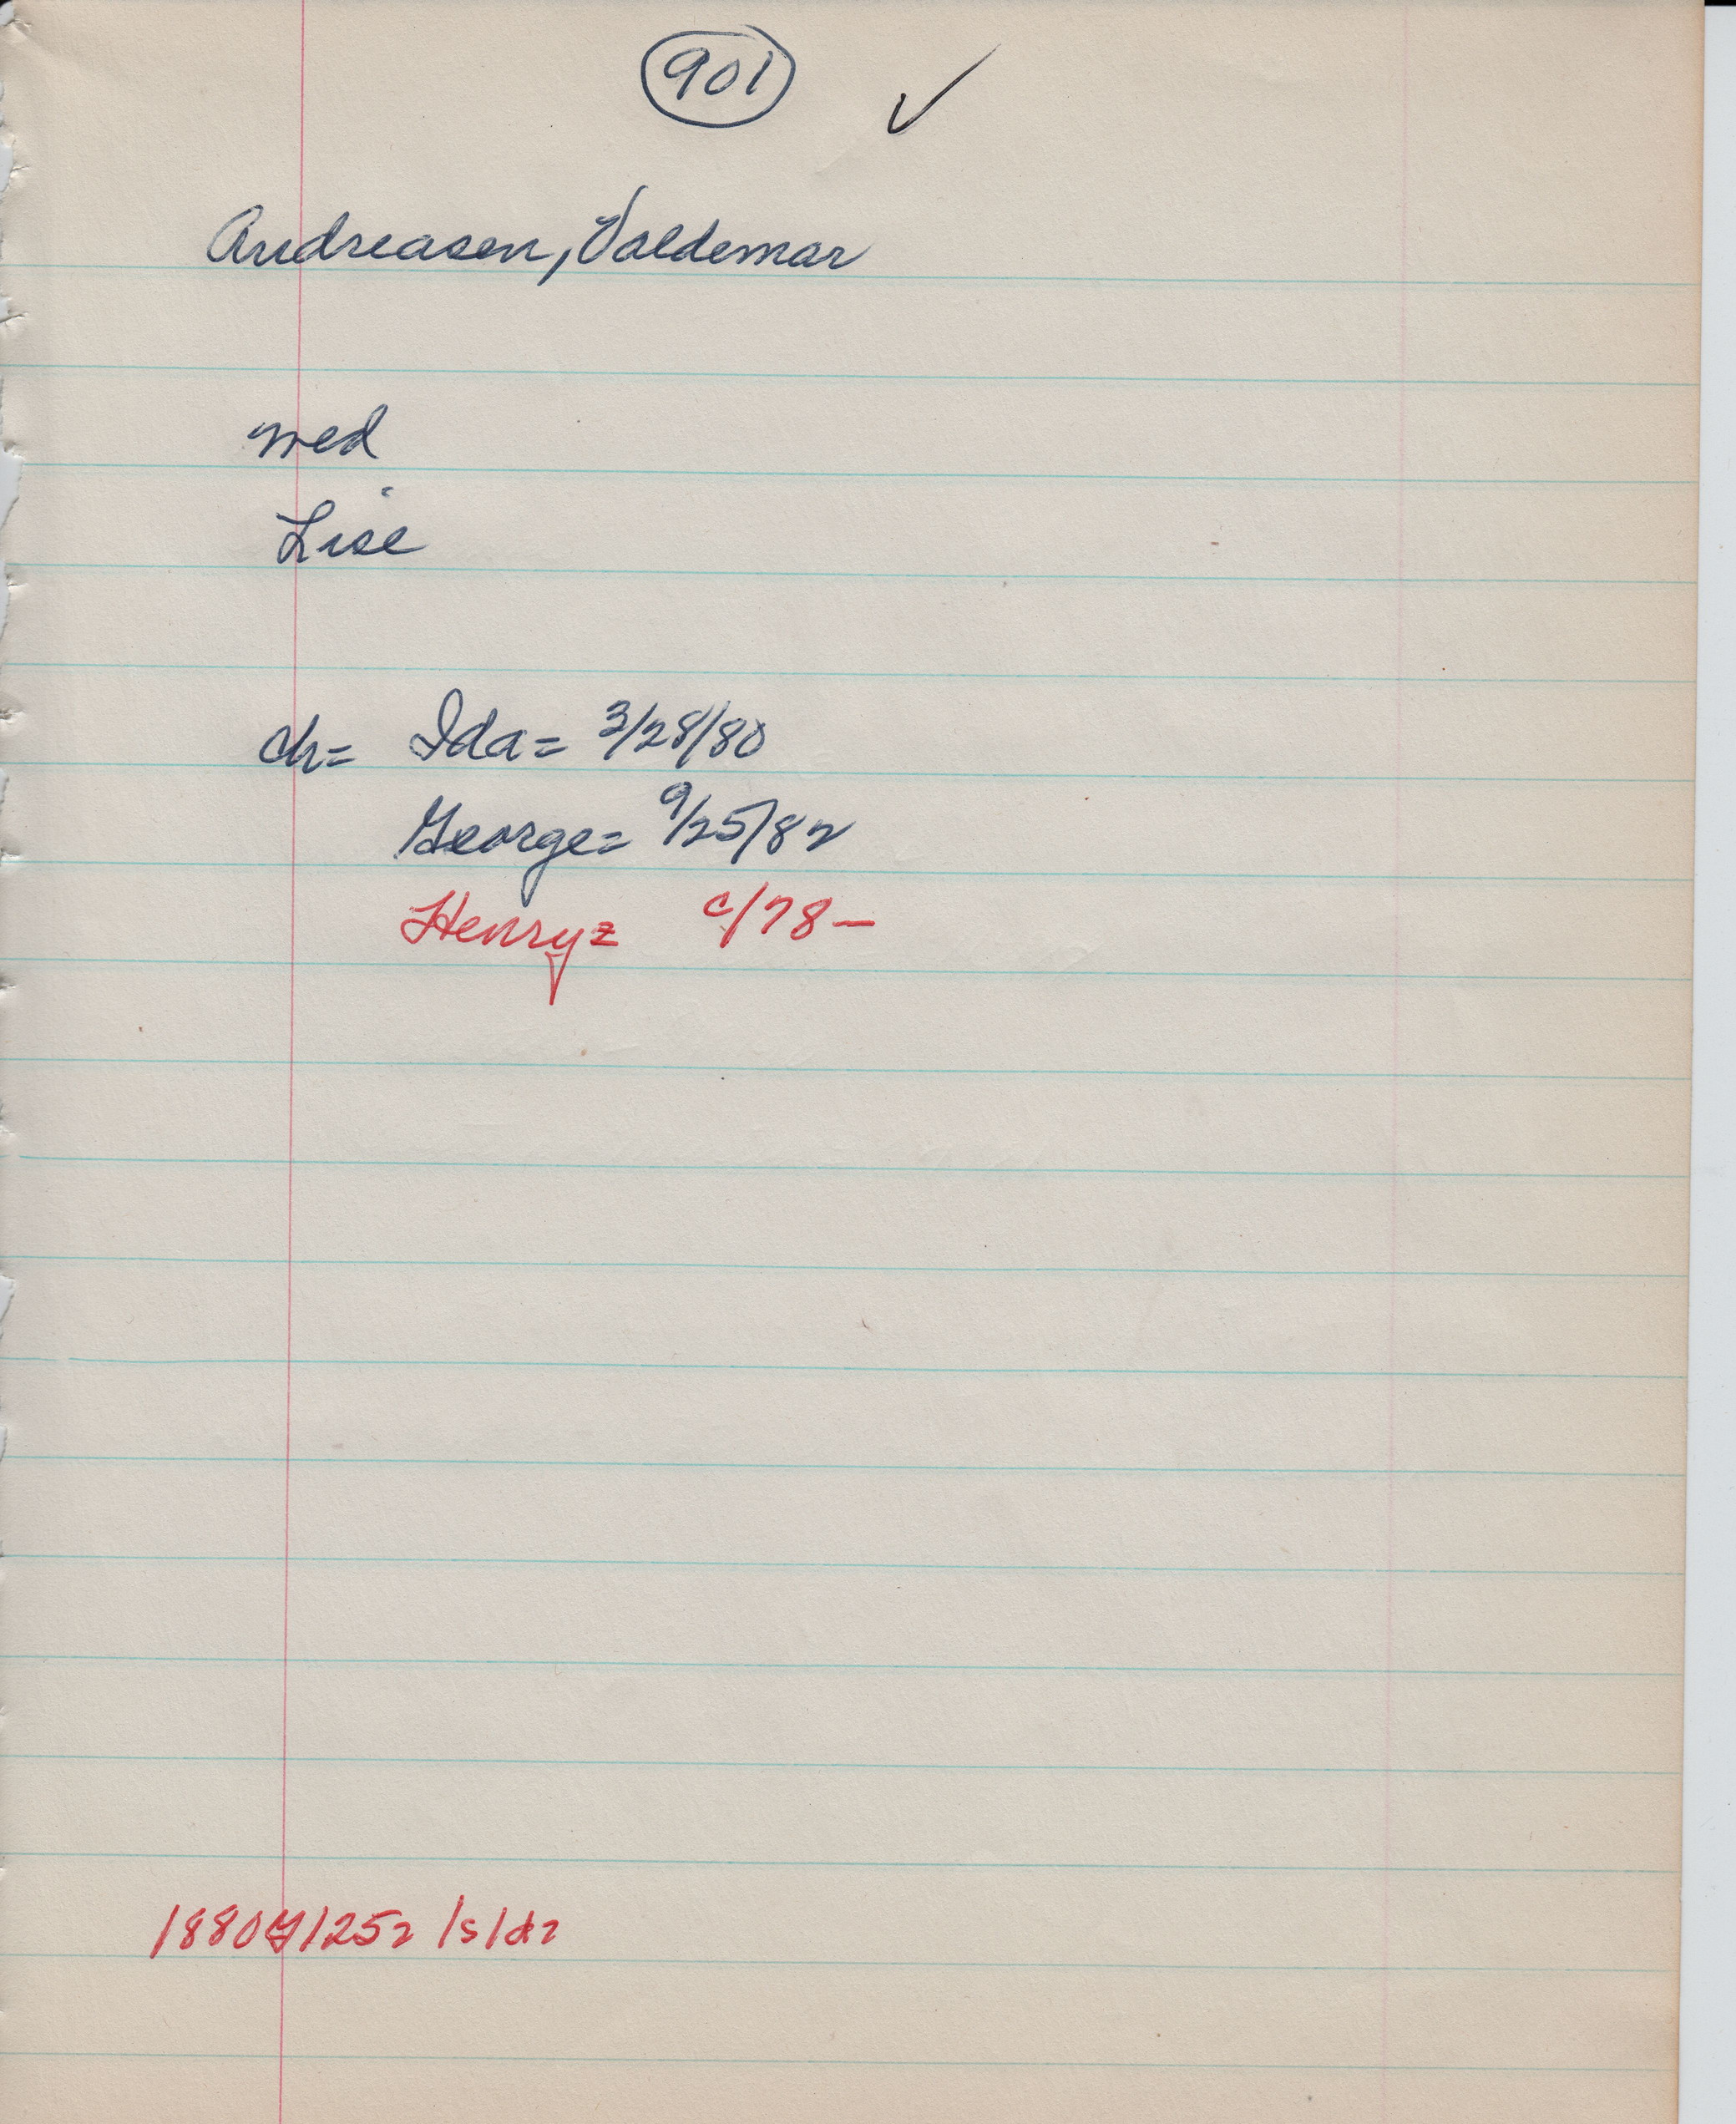 901 ✓
Andreasen, Valdemar
med
Lise
ch= Ida= 3/28/80
George= 9/25/82
Henry= c/78-